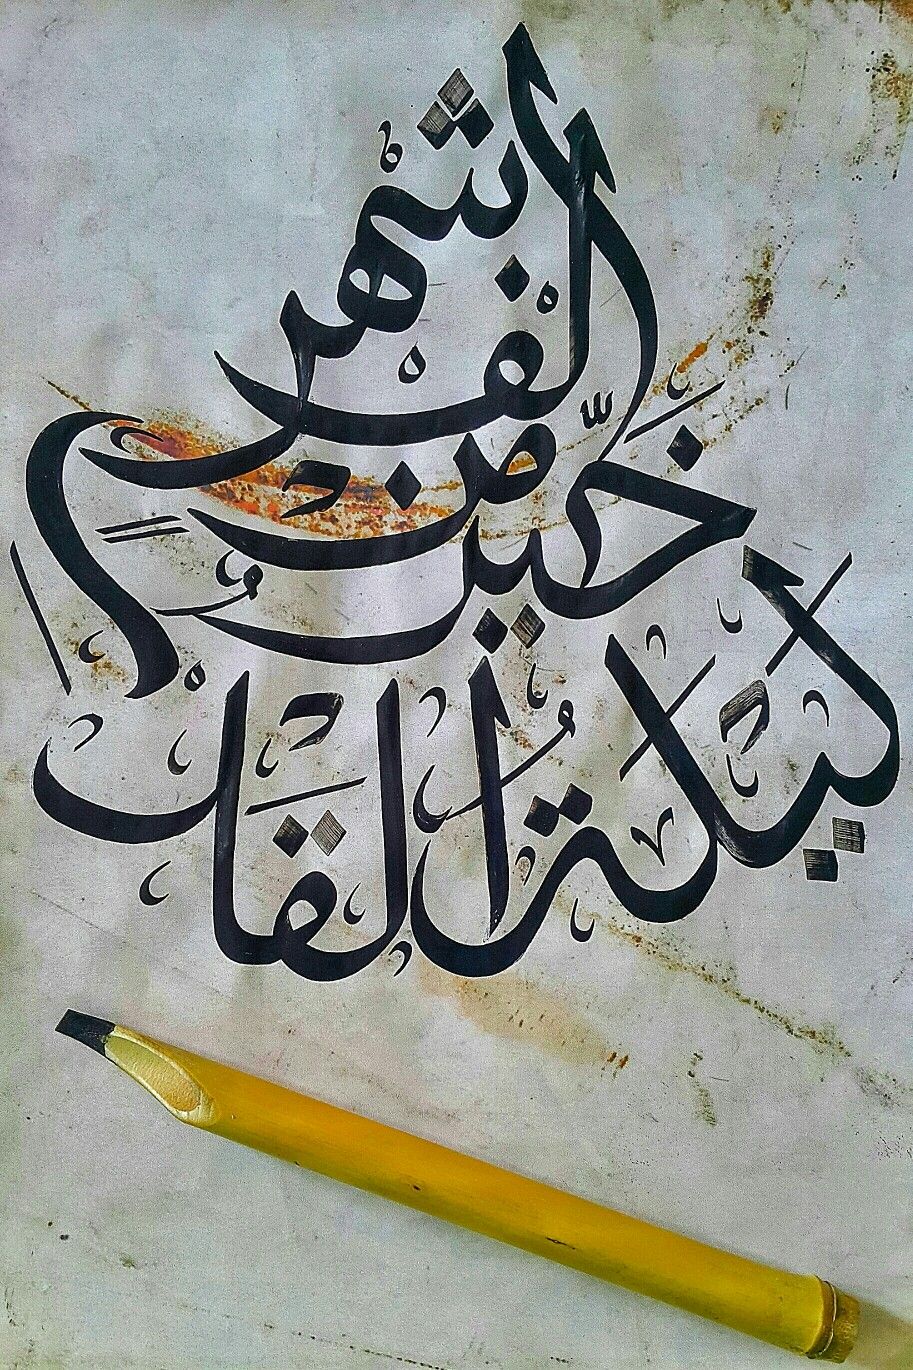 لَيْلَةُ الْقَدْرِ
خَيْرٌ مِّنْ
أَلْفِ شَهْرٍ